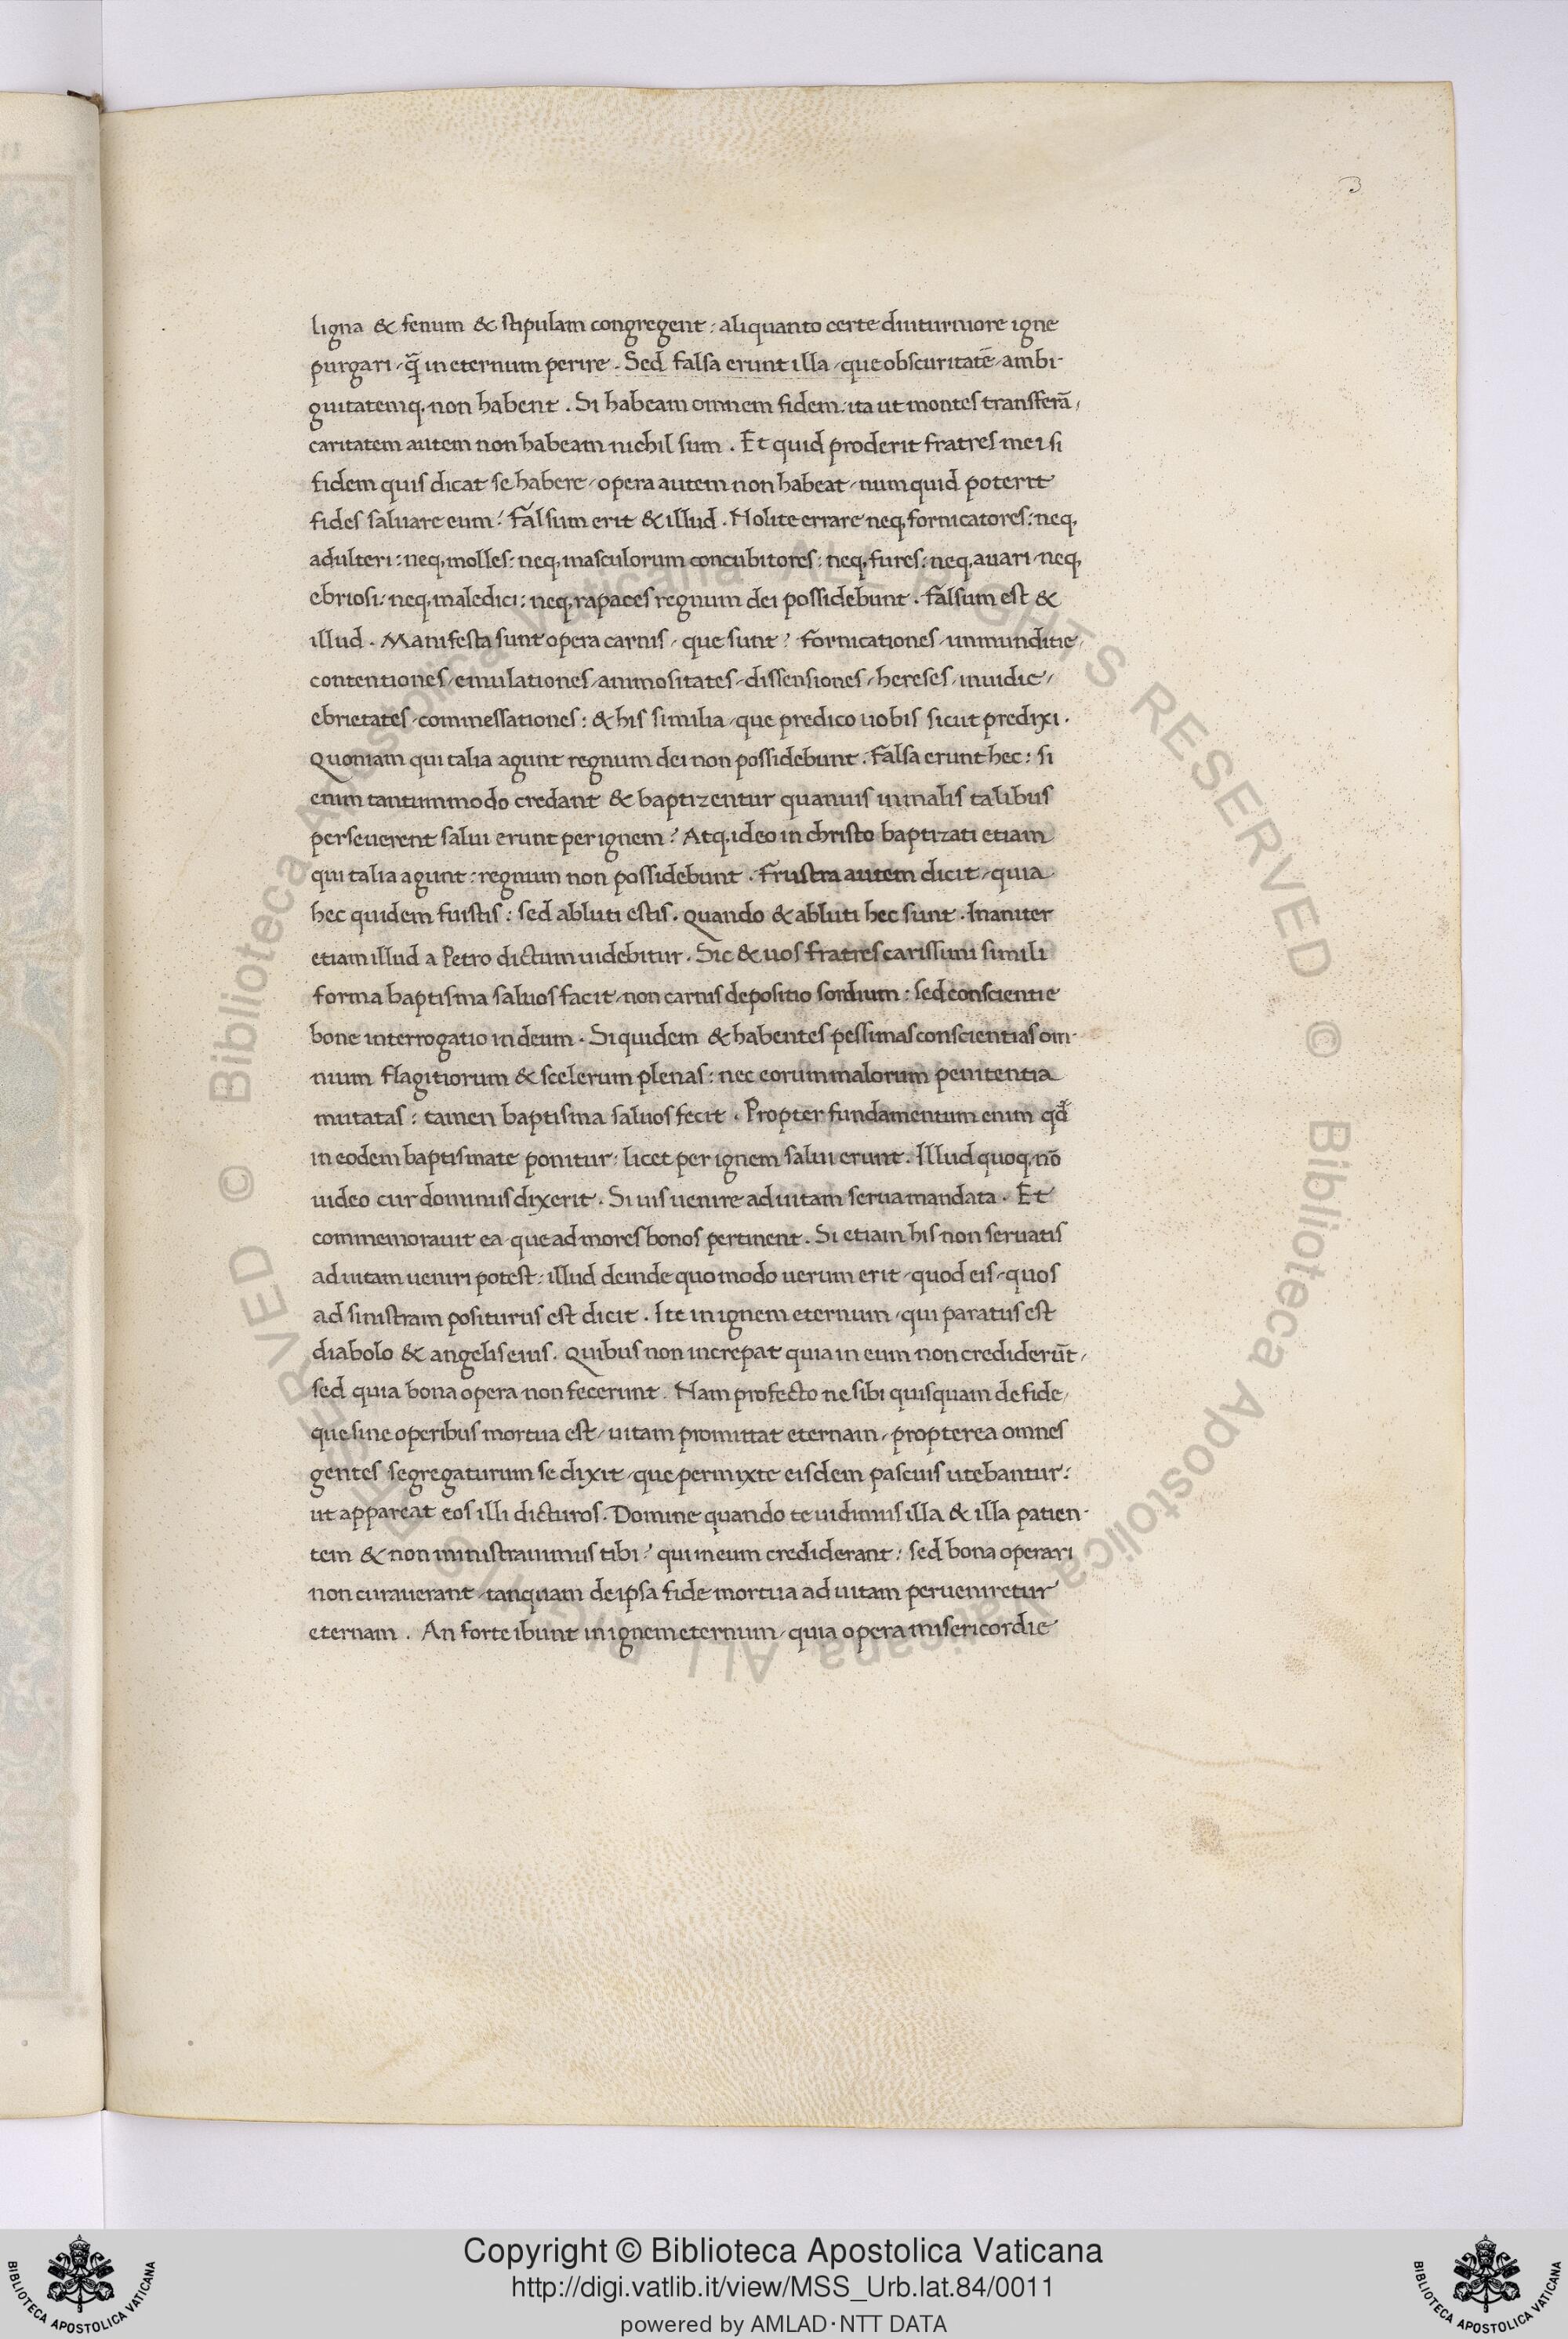 3
ligna & fenum & stipulam congregent: aliquanto certe diuturniore igne
purgari, q̃ in eternum perire. Sed falsa erunt illa, que obscuritatẽ, ambi-
guitatemq; non habent. Si habeam omnem fidem: ita ut montes transferã,
caritatem autem non habeam nichil sum. Et quid proderit fratres mei si
fidem quis dicat se habere, opera autem non habeat, numquid poterit
fides saluare eum? Falsum erit & illud. Nolite errare neq; fornicatores: neq;
adulteri: neq; molles: neq; masculorum concubitores: neq; fures: neq; auari, neq;
ebriosi: neq; maledici: neq; rapaces regnum dei possidebunt. Falsum est &
illud. Manifesta sunt opera carnis, que sunt? Fornicationes, immunditie,
contentiones, emulationes, animositates, dissensiones, hereses, inuidie,
ebrietates, commessationes: & his similia, que predico uobis sicut predixi.
Quoniam qui talia agunt regnum dei non possidebunt. Falsa erunt hec: si
enim tantummodo credant & baptizentur quamuis in malis talibus
perseuerent salui erunt per ignem? Atq; ideo in christo baptizati etiam
qui talia agunt: regnum non possidebunt. Frustra autem dicit, quia
hec quidem fuistis: sed abluti estis. Quando & abluti hec sunt. Inaniter
etiam illud a Petro dictum uidebitur. Sic & uos fratres carissimi simili
forma baptisma saluos facit, non carnis depositio sordium: sed conscientie
bone interrogatio in deum. Si quidem & habentes pessimas conscientias om-
nium flagitiorum & scelerum plenas: nec eorum malorum penitentia
mutatas: tamen baptisma saluos fecit. Propter fundamentum enim qđ
in eodem baptismate ponitur: licet per ignem salui erunt. Illud quoq; nõ
uideo cur dominus dixerit. Si uis uenire ad uitam serua mandata. Et
commemorauit ea, que ad mores bonos pertinent. Si etiam his non seruatis
ad uitam ueniri potest: illud deinde quomodo uerum erit, quod eis, quos
ad sinistram positurus est dicit. Ite in ignem eternum, qui paratus est
diabolo & angelis eius. Quibus non increpat quia in eum non crediderũt,
sed quia bona opera non fecerunt. Nam profecto ne sibi quisquam de fide,
que sine operibus mortua est, uitam promittat eternam, propterea omnes
gentes segregaturum se dixit, que permixte eisdem pascuis utebantur:
ut appareat eos illi dicturos. Domine quando te uidimus illa & illa patien-
tem & non ministrauimus tibi? qui in eum crediderant: sed bona operari
non curauerant, tanquam de ipsa fide mortua ad uitam perueniretur
eternam. An forte ibunt in ignem eternum, quia opera misericordie
© Biblioteca Apostolica Vaticana ALL RIGHTS RESERVED
© Biblioteca Apostolica Vaticana ALL RIGHTS RESERVED
Copyright © Biblioteca Apostolica Vaticana
http://digi.vatlib.it/view/MSS_Urb.lat.84/0011
powered by AMLAD·NTT DATA
BIBLIOTECA APOSTOLICA VATICANA
BIBLIOTECA APOSTOLICA VATICANA